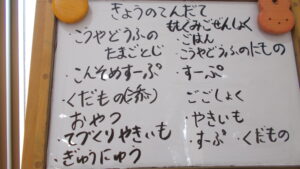 きょうのてんだて
・こうやどうふの
たまごとじ
・こんそめすーぷ
・くだもの
おやつ
・てづくりやきいも
・ぎゅうにゅう
ごはん
・こうやどうふのにもの
・すーぷ
ごごしょく
・やきいも
・すーぷ ・くだもの